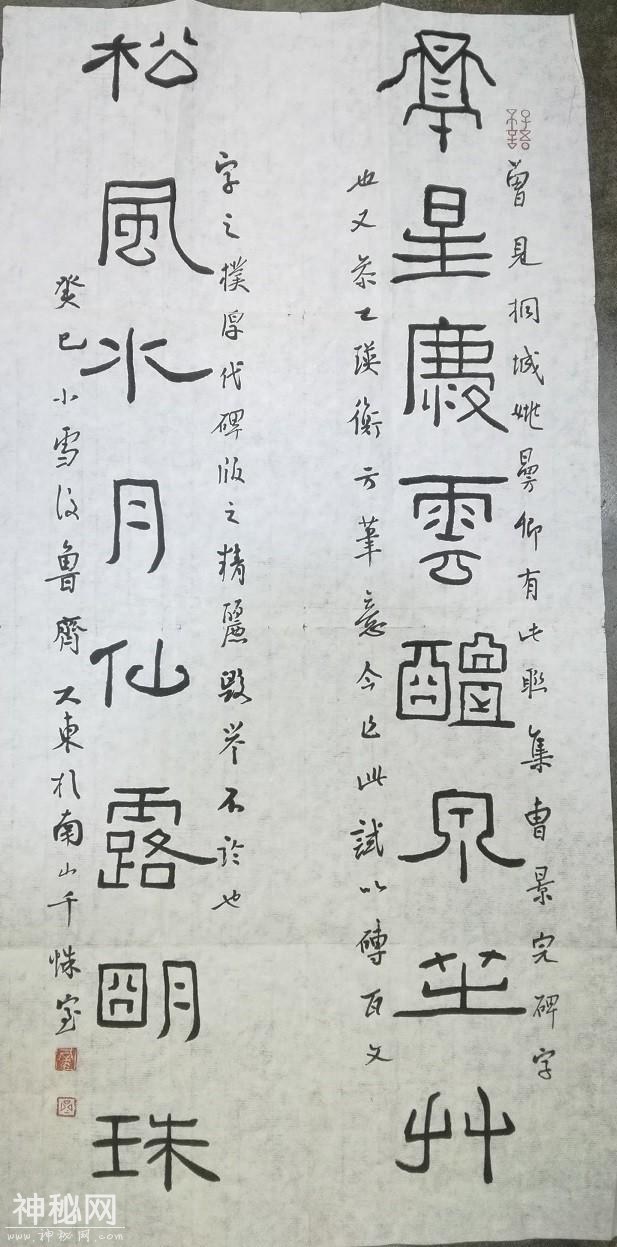 曾見桐城姚卿有此聯集曹景完碑字
景星慶雲醴泉芝艸
也又参乙瑛衡方筆意今此試以磚瓦文
字之樸厚代碑版之精麗毀譽不計也
松風水月仙露朙珠
癸巳小雪後魯齊大東於南山千怵室
神秘网
www.神秘网.com